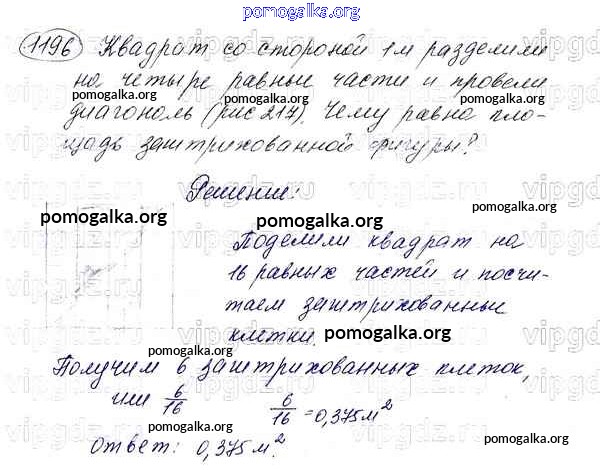 pomogalka.org
1196 Квадрат со стороной 1м разделили
на четыре равные части и провели
pomogalka.org
pomogalka.org
диагональ (рис 217). Чему равна пло-
щадь заштрихованной фигуры?
pomogalka.org
pomogalka.org
Решение:
pomogalka.org
pomogalka.org
Поделили квадрат на
16 равных частей и посчи-
таем заштрихованные
клетки.
pomogalka.org
pomogalka.org
Получим 6 заштрихованных клеток,
или 6/16
6/16 = 0,375 м²
pomogalka.org
pomogalka.org
ответ: 0,375 м².